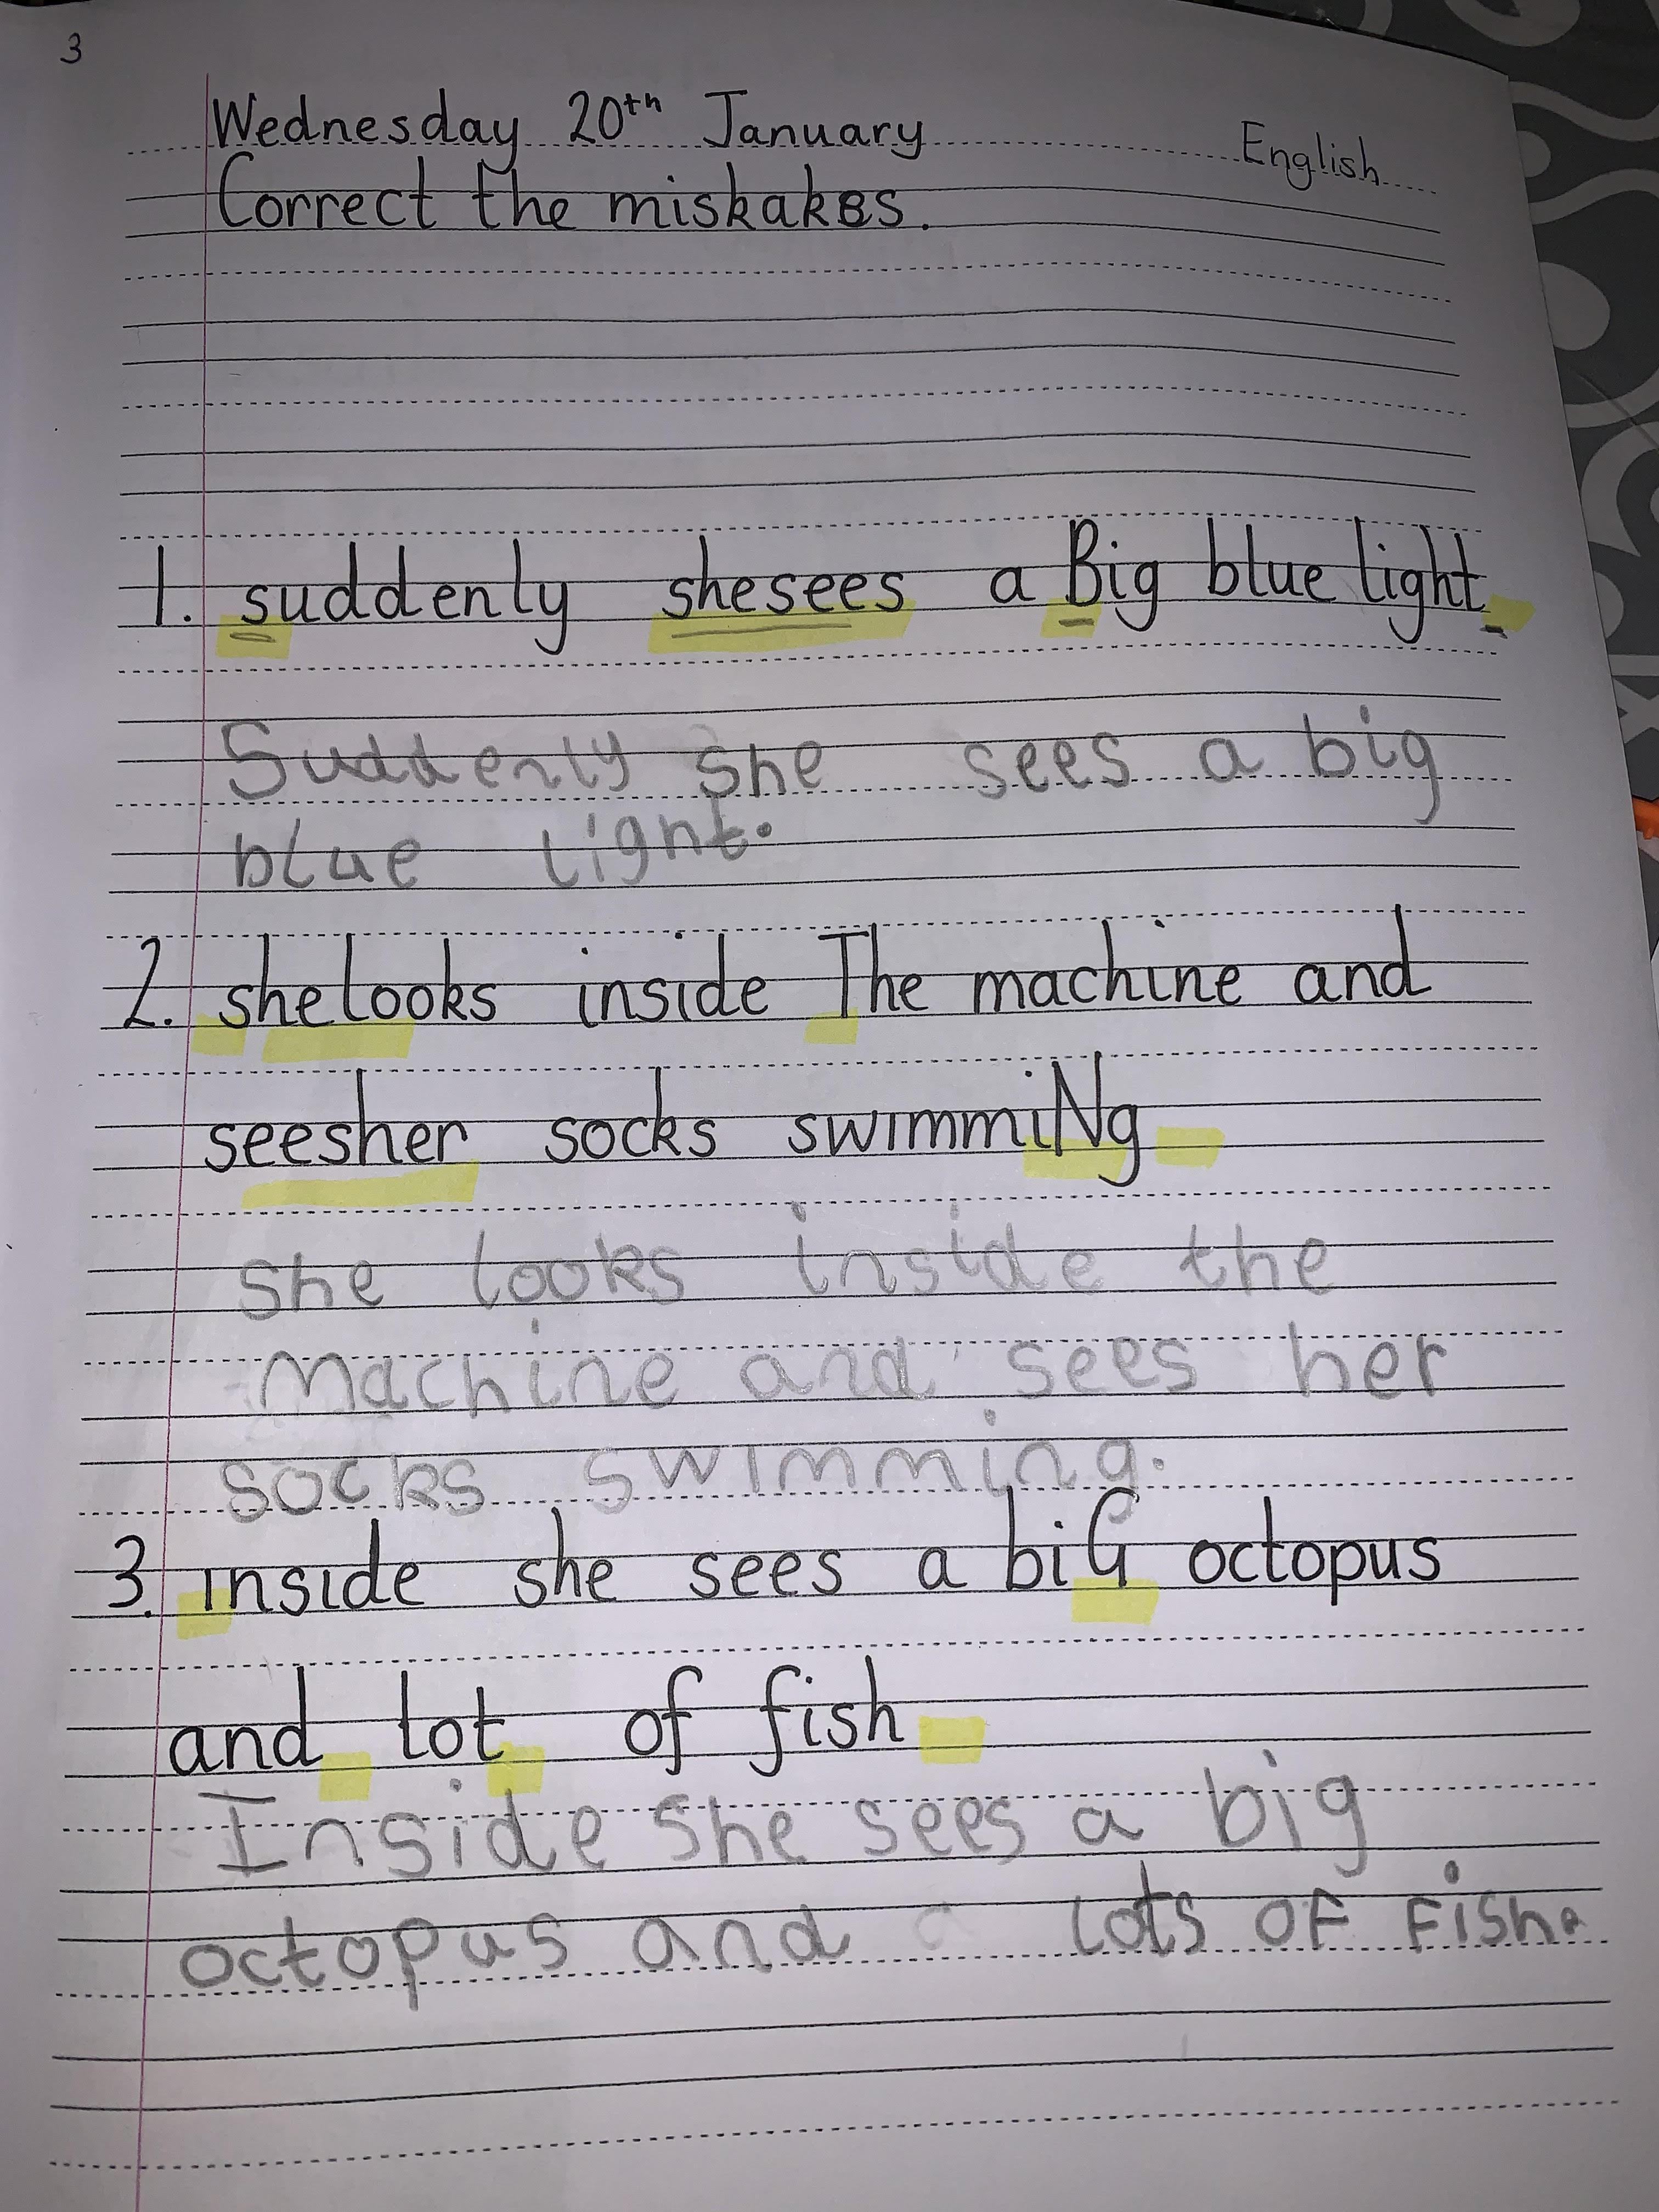 3
Wednesday 20th January English
Correct the miskakes.
1. suddenly shesees a Big blue light.
Suddenly she sees a big
blue light.
2. shelooks inside The machine and
seesher socks swimmiNg
She looks inside the
Machine and sees her
socks swimming.
3. inside she sees a biG octopus
and lot of fish
Inside She sees a big
octopus and lots OF Fish.